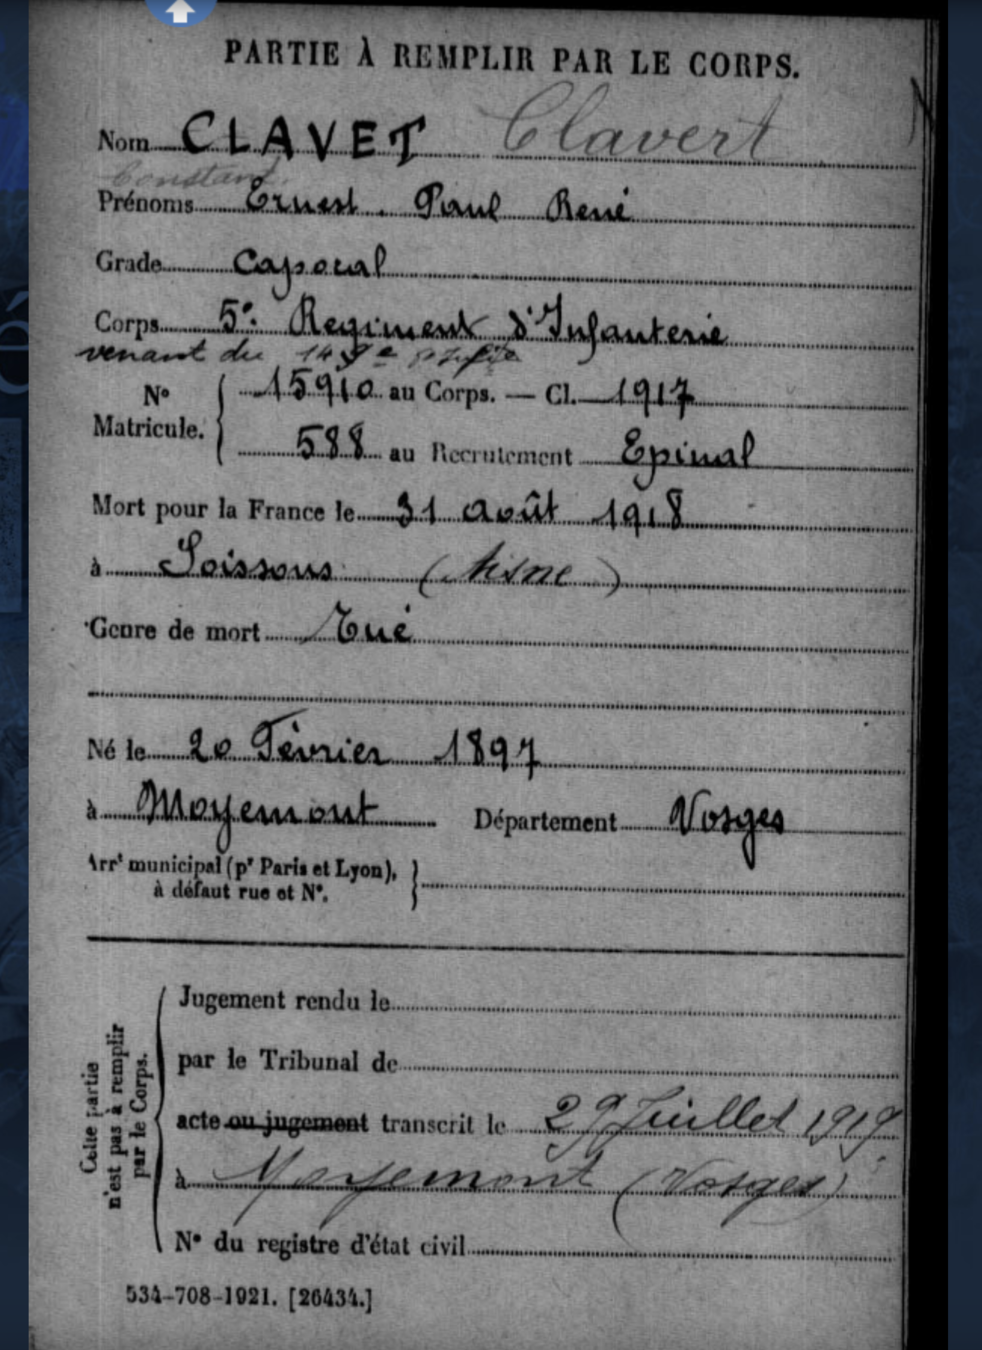 PARTIE À REMPLIR PAR LE CORPS.
Nom CLAVET Clavert
Constant
Prénoms Ernest. Paul René
Grade Caporal
Corps 5e Regiment d'Infanterie
venant du 149e
No Matricule. 15910 au Corps. — Cl. 1917
588 au Recrutement Epinal
Mort pour la France le 31 août 1918
à Soissons (Aisne)
Genre de mort Tué
Né le 20 Février 1897
à Moyemont Département Vosges
Arrt municipal (pr Paris et Lyon),
à défaut rue et No.
Cette partie
n'est pas à remplir
par le Corps.
Jugement rendu le
par le Tribunal de
acte ou jugement transcrit le 29 Juillet 1919
à Moyemont (Vosges)
No du registre d'état civil
534-708-1921. [26434.]